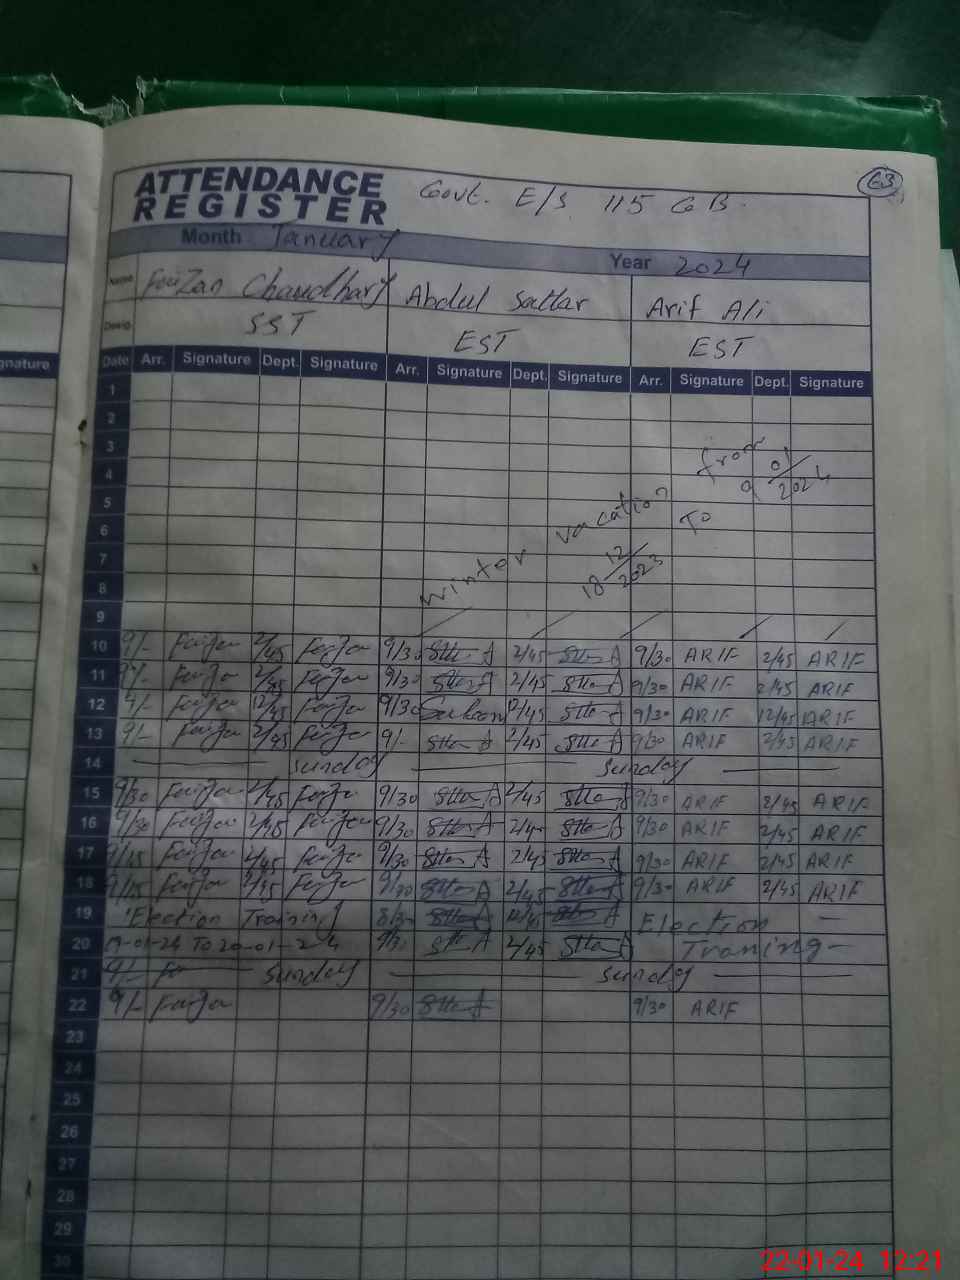 63
ATTENDANCE Govt. E/S 115 GB.
REGISTER
Month January
Year 2024
Name Faizan Chaudhary Abdul Sattar Arif Ali
Desig. SST EST EST
gnature Date Arr. Signature Dept. Signature Arr. Signature Dept. Signature Arr. Signature Dept. Signature
1
2
3
4
5
6
7
8
9
Winter vacation
18 12/2023 To
from 9 01/2024
10 9/- 2/45 9/30 2/45 9/30 ARIF 2/45 ARIF
11 9/- 2/45 9/30 2/45 9/30 ARIF 2/45 ARIF
12 9/- 12/45 9/30 12/45 9/30 ARIF 12/45 ARIF
13 9/- 2/45 9/- 2/45 9/30 ARIF 2/45 ARIF
14 Sunday Sunday
15 9/30 2/45 9/30 2/45 9/30 ARIF 2/45 ARIF
16 9/30 2/45 9/30 2/4 9/30 ARIF 2/45 ARIF
17 9/15 2/45 9/30 2/45 9/30 ARIF 2/45 ARIF
18 9/15 2/45 9/30 2/45 9/30 ARIF 2/45 ARIF
19 Election Training 8/30 12/45 Election
20 19-01-24 To 20-01-24 2/45 Traning
21 9/- Sunday Sunday
22 9/- 9/30 9/30 ARIF
23
24
25
26
27
28
29
30
22-01-24 12:21